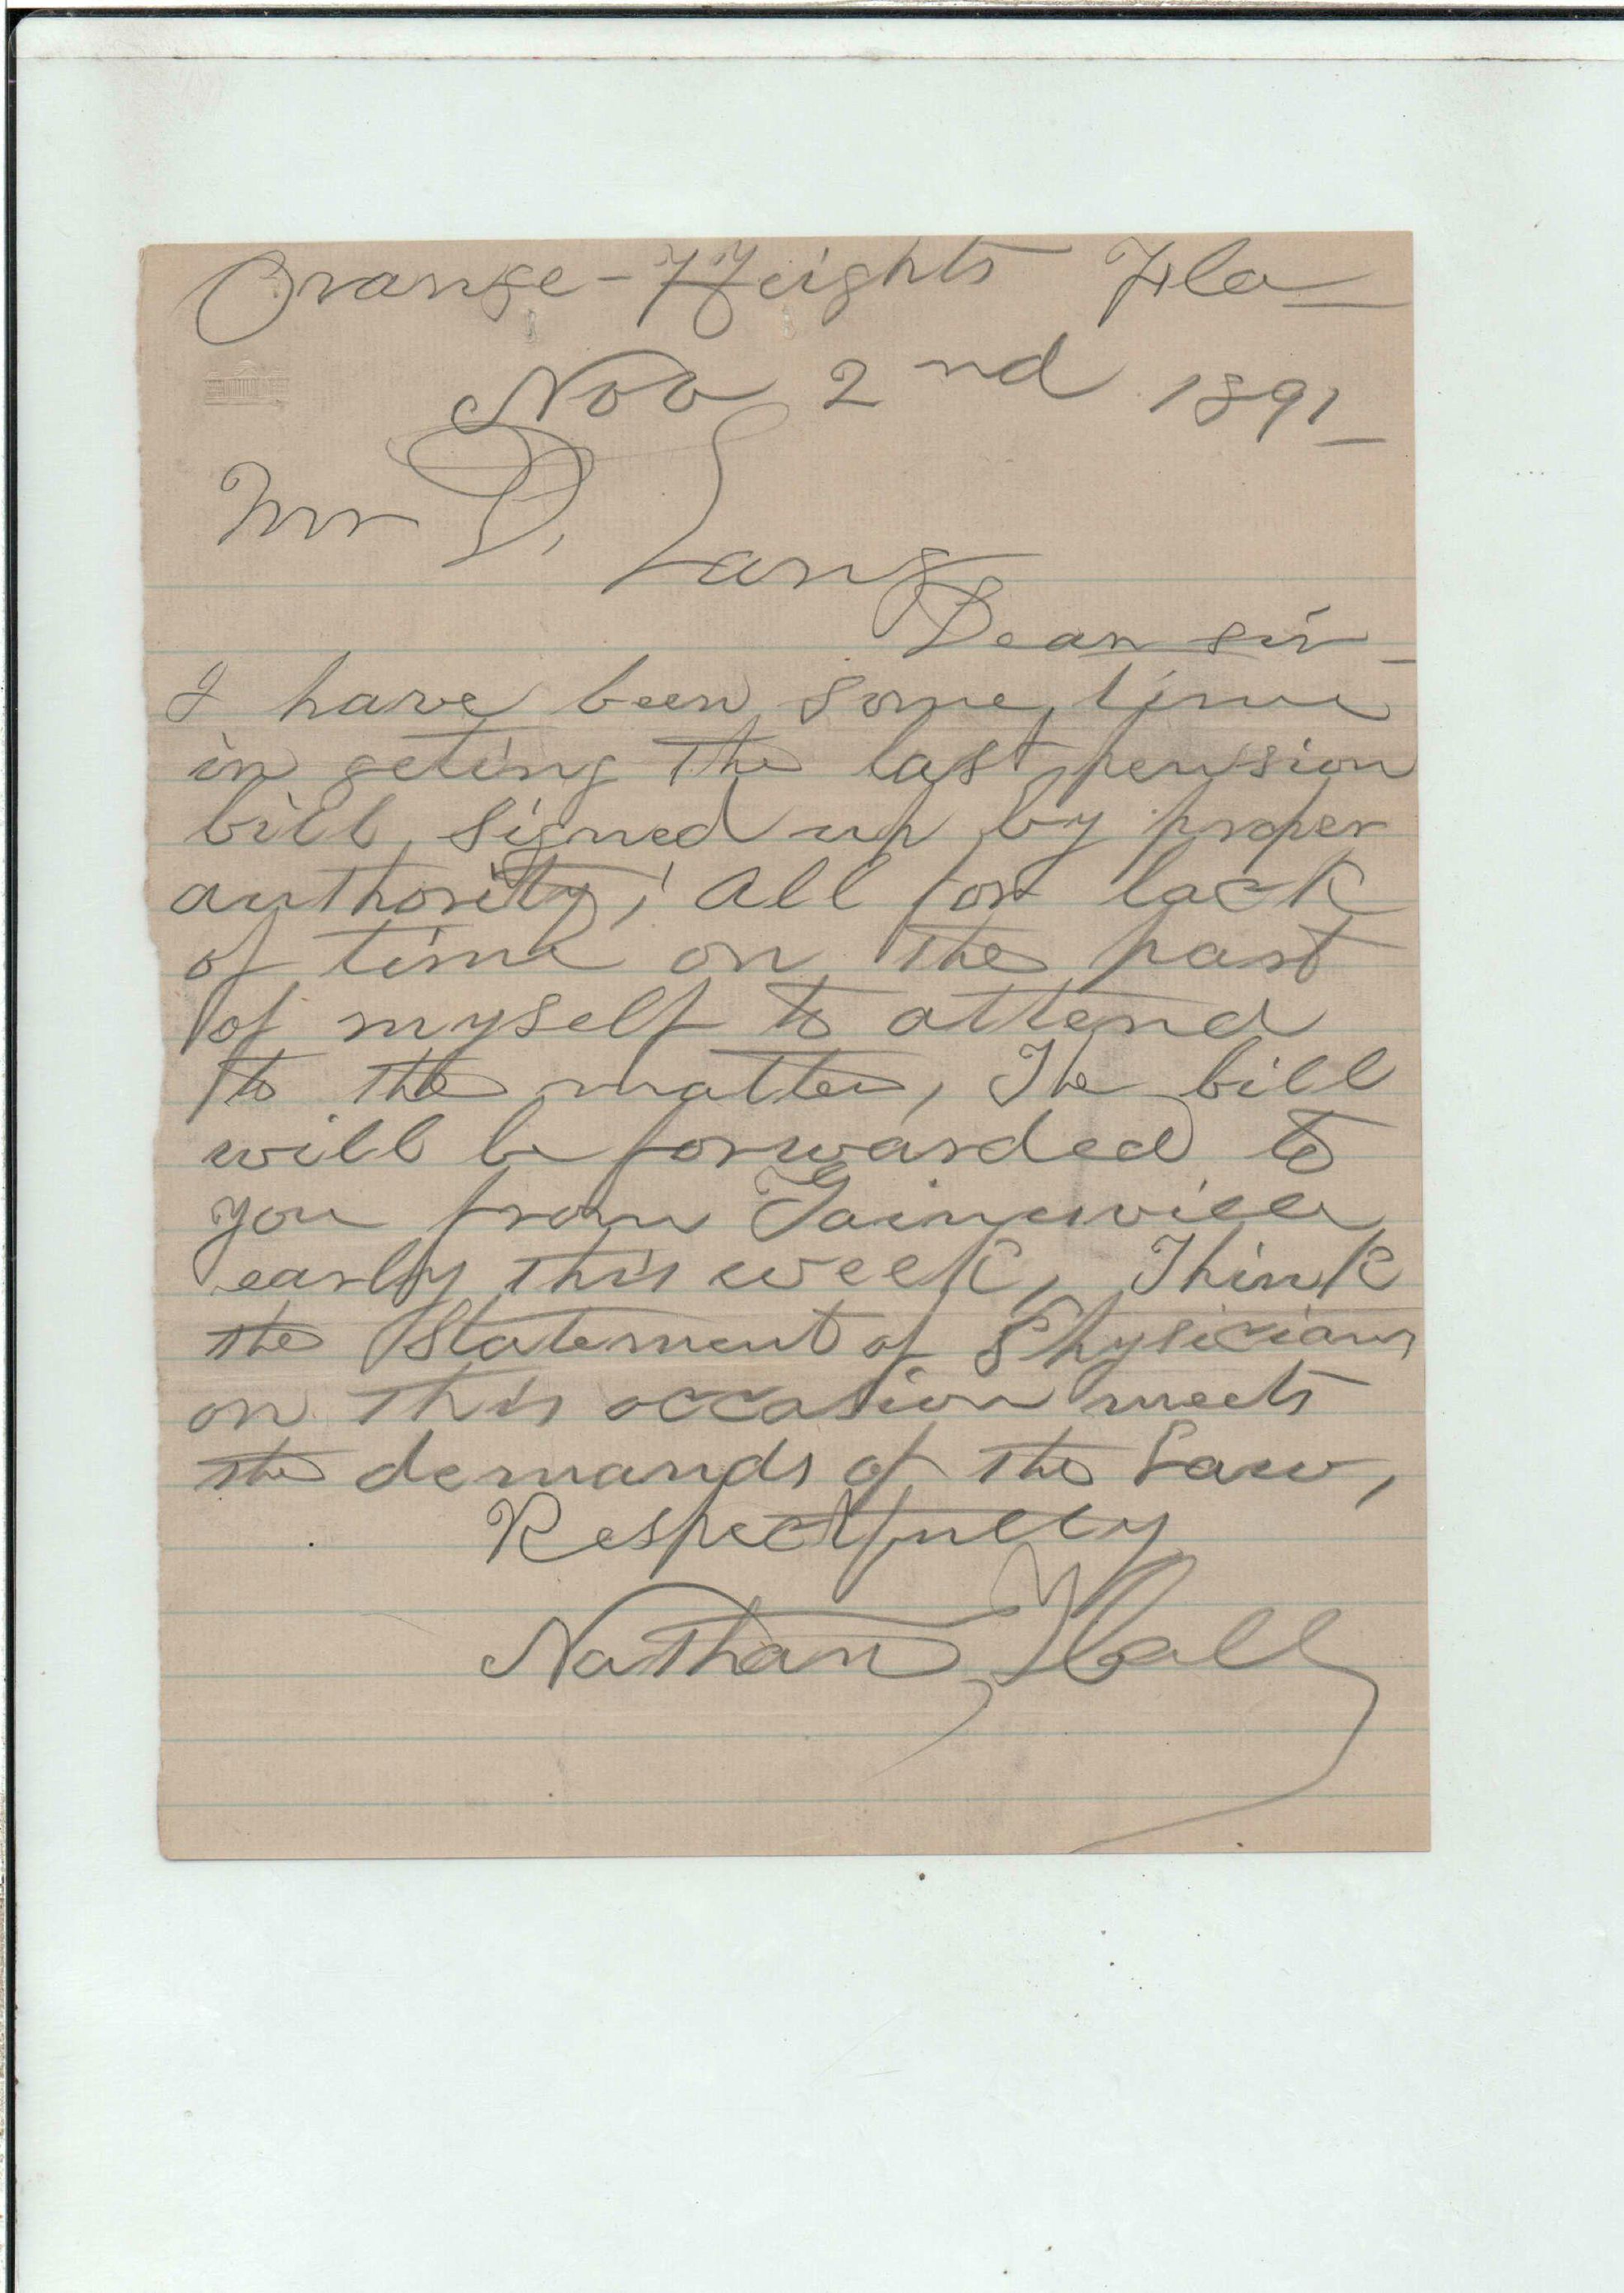 Orange-Heights Fla
Nov 2nd 1891
Mr D. Lang
Dear sir
I have been some time
in geting the last pension
bill signed up by proper
authority; all for lack
of time on the part
of myself to attend
to the matter, The bill
will be forwarded to
you from Gainesville
early this week, Think
the Statement of Physicians
on this occasion meets
the demands of the Law,
Respectfully
Nathan Hall